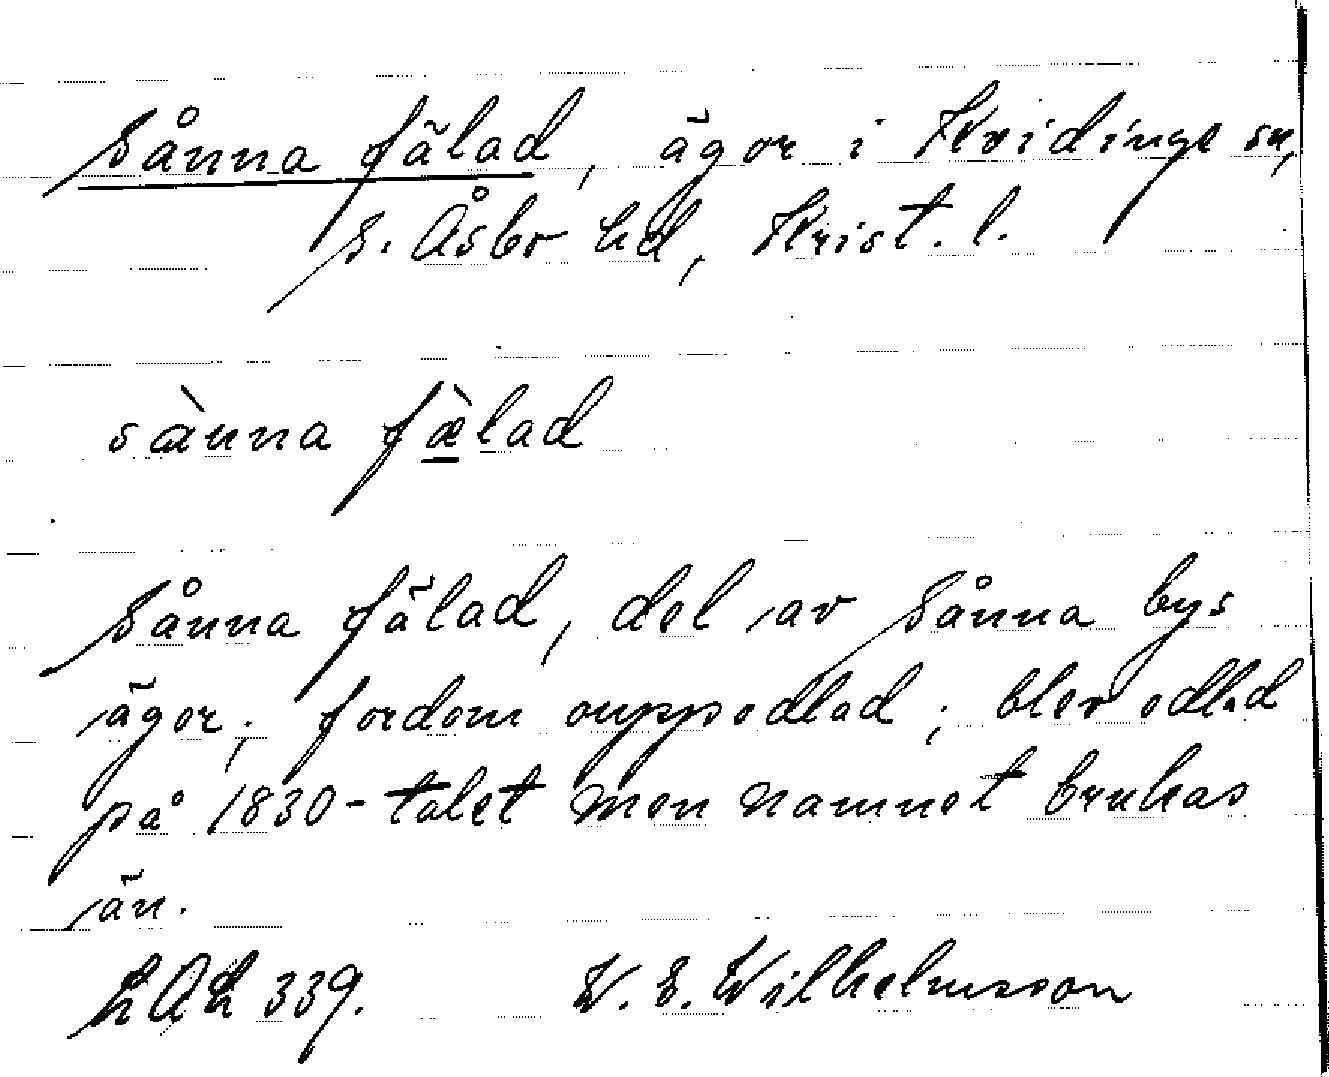 Sånna fälad, ägor i Kvidinge sn,
S. Åsbo hd, Krist. l.
sànna fæ̀lad
Sånna fälad, del av Sånna bys
ägor; fordom ouppodlad; blev odlad
på 1830-talet men namnet brukas
än.
LAL 339. W. E. Wilhelmsson